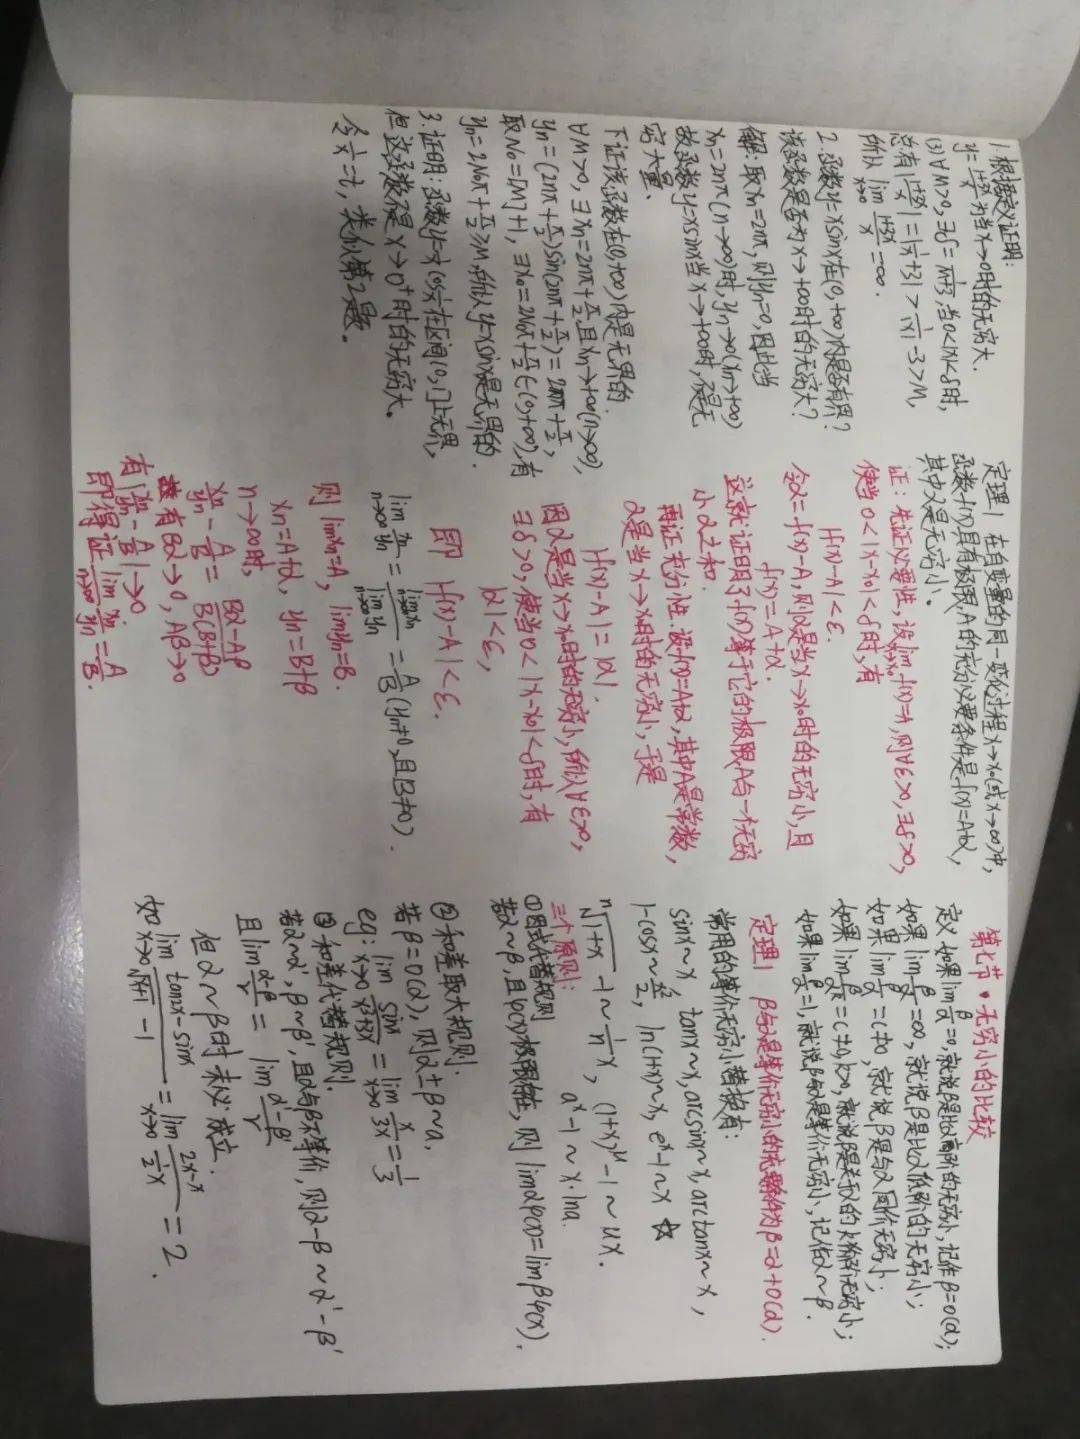 1. 根据定义证明:
y=\frac{1+3x}{x}为当x→0时的无穷大.
(3)∀M>0,∃δ=\frac{1}{M+3},当0<|x|<δ时,
总有|\frac{1+3x}{x}|=|\frac{1}{x}+3|>\frac{1}{|x|}-3>M,
所以\lim_{x→0}\frac{1+3x}{x}=∞.
2. 函数y=xsinx在(0,+∞)内是否有界?
该函数是否为x→+∞时的无穷大?
解:取xn=2nπ,则yn=0,因此当
xn=2nπ(n→∞)时,yn→0(xn→+∞)
故函数y=xsinx当x→+∞时,不是无
穷大量.
下证该函数在(0,+∞)内是无界的.
∀M>0,∃xn=2nπ+\frac{π}{2},且xn→+∞(n→∞),
yn=(2nπ+\frac{π}{2})sin(2nπ+\frac{π}{2})=2nπ+\frac{π}{2},
取N₀=[M]+1, ∃x₀=2N₀π+\frac{π}{2}∈(0,+∞),有
yn=2N₀π+\frac{π}{2}>M,所以y=xsinx是无界的.
3. 证明:函数y=\frac{1}{x}cos\frac{1}{x}在区间(0,1]上无界,
但这函数不是x→0⁺时的无穷大。
令\frac{1}{x}=t,类似第2题。
定理1 在自变量的同一变化过程x→x₀(或x→∞)中,
函数f(x)具有极限A的充分必要条件是f(x)=A+α,
其中α是无穷小。
证:先证必要性,设\lim_{x→x₀}f(x)=A,则∀ε>0,∃δ>0,
使当0<|x-x₀|<δ时,有
|f(x)-A|<ε.
令α=f(x)-A,则α是当x→x₀时的无穷小,且
f(x)=A+α.
这就证明了f(x)等于它的极限A与一个无穷
小α之和.
再证充分性.设f(x)=A+α,其中A是常数,
α是当x→x₀时的无穷小,于是
|f(x)-A|=|α|.
因α是当x→x₀时的无穷小,所以∀ε>0,
∃δ>0,使当0<|x-x₀|<δ时,有
|α|<ε,
即 |f(x)-A|<ε.
\lim_{n→∞}\frac{xn}{yn}=\frac{\lim_{n→∞}xn}{\lim_{n→∞}yn}=\frac{A}{B}(yn≠0,且B≠0).
则 limxn=A, limyn=B.
xn=A+α, yn=B+β
n→∞时,
\frac{xn}{yn}-\frac{A}{B}=\frac{Bα-Aβ}{B(B+β)}
有Bα→0, Aβ→0
有|\frac{xn}{yn}-\frac{A}{B}|→0.
即得证\lim_{n→∞}\frac{xn}{yn}=\frac{A}{B}.
第七节·无穷小的比较
定义 如果lim\frac{β}{α}=0,就说β是比α高阶的无穷小,记作β=o(α);
如果lim\frac{β}{α}=∞,就说β是比α低阶的无穷小;
如果lim\frac{β}{α}=c≠0,就说β是与α同阶无穷小;
如果lim\frac{β}{α^k}=c≠0,k>0,就说β是关于α的k阶无穷小;
如果lim\frac{β}{α}=1,就说β与α是等价无穷小,记作α~β.
定理1 β与α是等价无穷小的充要条件为β=α+o(α).
常用的等价无穷小替换有:
sinx~x, tanx~x, arcsinx~x, arctanx~x,
1-cosx~\frac{x²}{2}, ln(1+x)~x, eˣ-1~x ☆
\sqrt[n]{1+x}-1~\frac{1}{n}x, (1+x)^μ-1~μx.
aˣ-1~x·lna.
三个原则:
①因式代替规则
若α~β,且φ(x)极限存在,则limαφ(x)=limβφ(x).
②和差取大规则:
若β=o(α),则α±β~α.
eg: \lim_{x→0}\frac{sinx}{x³+3x}=\lim_{x→0}\frac{x}{3x}=\frac{1}{3}
③和差代替规则:
若α~α',β~β',且α与β不等价,则α-β~α'-β'
且lim\frac{α-β}{γ}=lim\frac{α'-β'}{γ}
但α~β时未必成立.
如\lim_{x→0}\frac{tan2x-sinx}{\sqrt{1+x}-1}=\lim_{x→0}\frac{2x-x}{\frac{1}{2}x}=2.